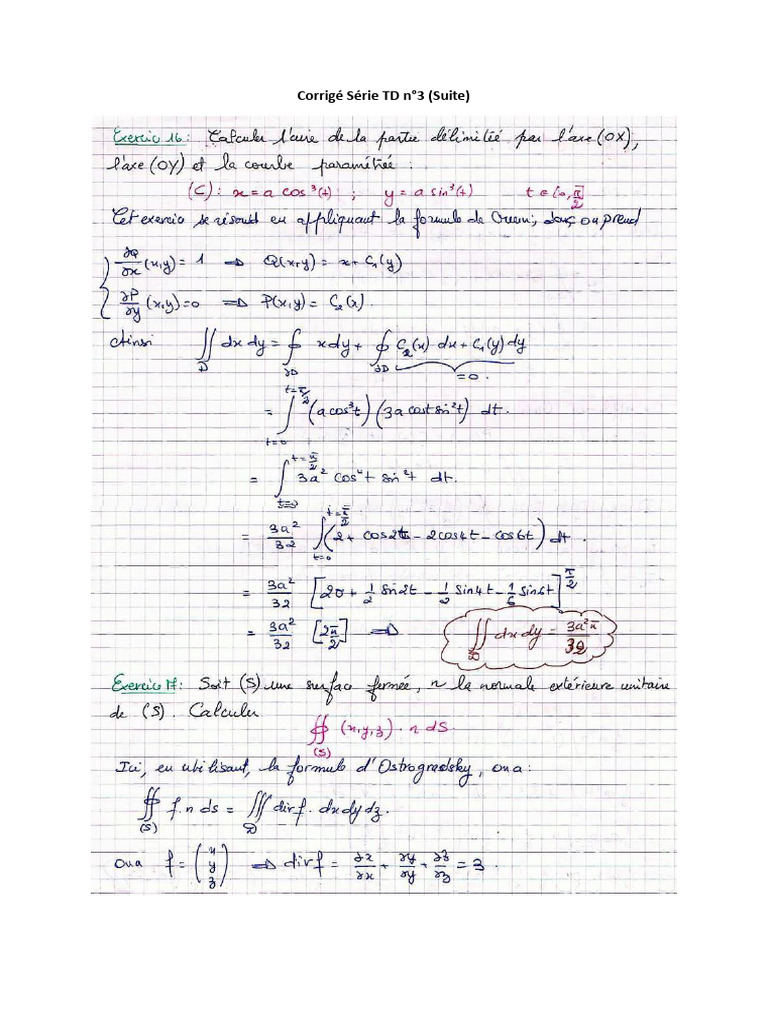 Corrigé Série TD n°3 (Suite)
Exercice 16: Calculer l'aire de la partie délimitée par l'axe (OX),
l'axe (OY) et la courbe paramétrée :
(C): x = a cos³(t) ; y = a sin³(t) t ∈ [0, π/2]
Cet exercice se résout en appliquant la formule de Green; donc on prend
{ ∂Q/∂x (x,y) = 1 ⇒ Q(x,y) = x + C₁(y)
∂P/∂y (x,y) = 0 ⇒ P(x,y) = C₂(x).
Ainsi ∬_D dx dy = ∮_∂D x dy + ∮_∂D C₂(x) dx + C₁(y) dy
= 0.
= ∫_{t=0}^{t=π/2} (a cos³t) (3a cost sin²t) dt.
= ∫_{t=0}^{t=π/2} 3a² cos⁴t sin²t dt.
= 3a²/32 ∫_{t=0}^{t=π/2} (2 + cos2t - 2cos4t - cos6t) dt.
= 3a²/32 [2σ + 1/2 sin2t - 1/2 sin4t - 1/6 sin6t]^{π/2}
= 3a²/32 [2π/2] ⇒ ∬_D dx dy = 3a²π/32
Exercice 17: Soit (S) une surface fermée, n la normale extérieure unitaire
de (S). Calculer
∯_(S) (x,y,z) · n dS.
Ici, en utilisant, la formule d'Ostrogradsky, on a:
∯_(S) f.n ds = ∭_D div f . dx dy dz.
on a f = (x y z) ⇒ div f = ∂x/∂x + ∂y/∂y + ∂z/∂z = 3.